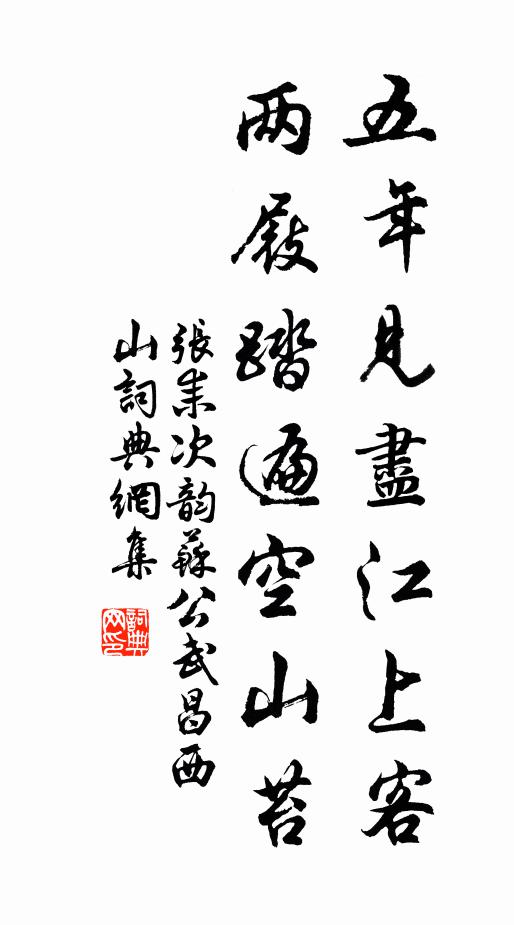 五年見盡江上客
两屐踏遍空山苔
張耒次韵蘇公武昌西
山詞典網集
詞典
网印